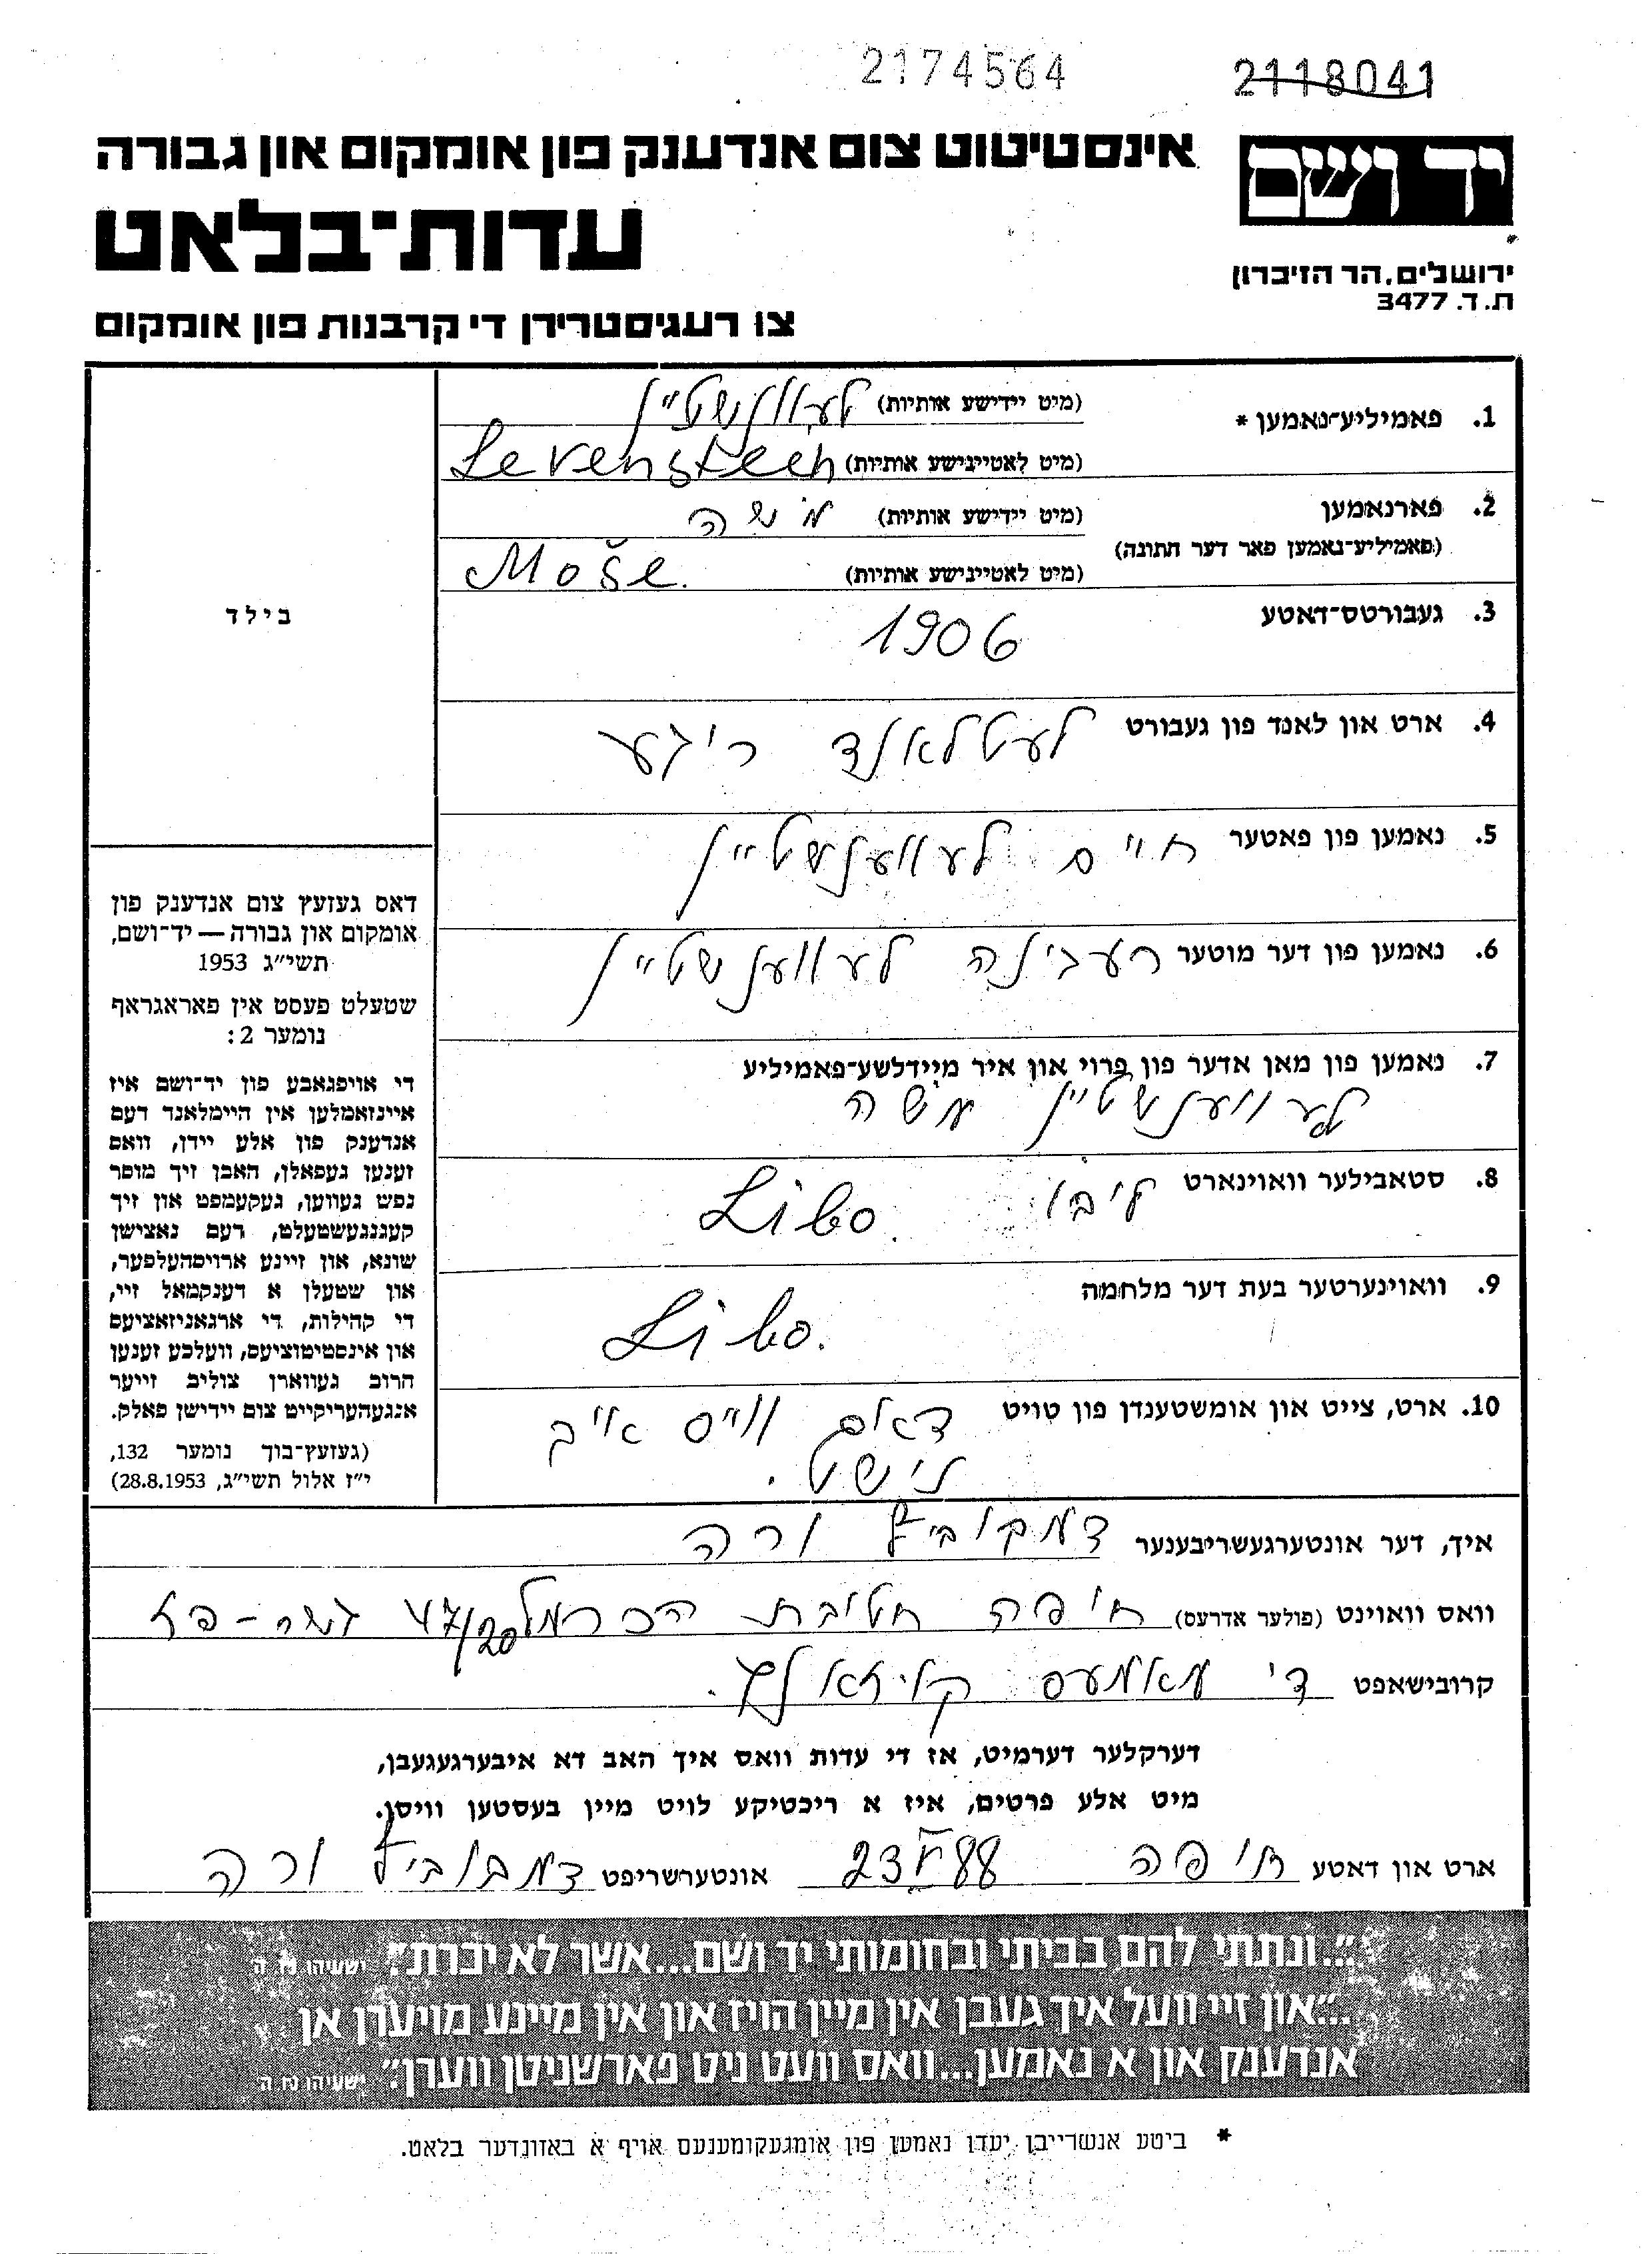 2174564
2118041
יד ושם
אינסטיטוט צום אנדענק פון אומקום און גבורה
עדות-בלאט
ירושלים, הר הזיכרון
ת.ד. 3477
צו רעגיסטרירן די קרבנות פון אומקום
1. פאמיליע-נאמען * (מיט יידישע אותיות) לעוונשטיין
(מיט לאטייגישע אותיות) Levensteen
2. פארנאמען (מיט יידישע אותיות) משה
(פאמיליע-נאמען פאר דער חתונה) (מיט לאטייגישע אותיות) Moše.
3. געבורטס-דאטע 1906
4. ארט און לאנד פון געבורט לעטלאנד ריגע
5. נאמען פון פאטער חיים לעווענשטיין
6. נאמען פון דער מוטער רעבינה לעווענשטיין
7. נאמען פון מאן אדער פון פרוי און איר מיידלשע-פאמיליע
לעווענשטיין משה
8. סטאבילער וואוינארט ליבו Libo.
9. וואוינערטער בעת דער מלחמה
Libo.
10. ארט, צייט און אומשטענדן פון טויט דאס ווייס איך
נישט.
בילד
דאס געזעץ צום אנדענק פון
אומקום און גבורה — יד-ושם,
תשי״ג 1953
שטעלט פעסט אין פאראגראף
נומער 2:
די אויפגאבע פון יד-ושם איז
איינזאמלען אין היימלאנד דעם
אנדענק פון אלע יידן, וואס
זענען געפאלן, האבן זיך מוסר
נפש געווען, געקעמפט און זיך
קעגנגעשטעלט, דעם נאצישן
שונא, און זיינע ארויסהעלפער,
און שטעלן א דענקמאל זיי,
די קהילות, די ארגאניזאציעס
און אינסטיטוציעס, וועלכע זענען
חרוב געווארן צוליב זייער
אנגעהעריקייט צום יידישן פאלק.
(געזעץ-בוך נומער 132,
י״ז אלול תשי״ג, 28.8.1953)
איך, דער אונטערגעשריבענער דמבוביץ ורה
וואס וואוינט (פולער אדרעס) חיפה חטיבת הכרמלי 47/20
קרובישאפט די מאמעס קויזאולץ.
דערקלער דערמיט, אז די עדות וואס איך האב דא איבערגעגעבן,
מיט אלע פרטים, איז א ריכטיקע לויט מיין בעסטען וויסן.
ארט און דאטע חיפה 23 V 88 אונטערשריפט דמבוביץ ורה
״...ונתתי להם בביתי ובחומותי יד ושם...אשר לא יכרת״. ישעיהו נו ה
...״און זיי וועל איך געבן אין מיין הויז און אין מיינע מויערן אן
אנדענק און א נאמען...וואס וועט ניט פארשניטן ווערן״. ישעיהו נו ה
* ביטע אנשרייבן יעדן נאמען פון אומגעקומענעם אויף א באזונדער בלאט.